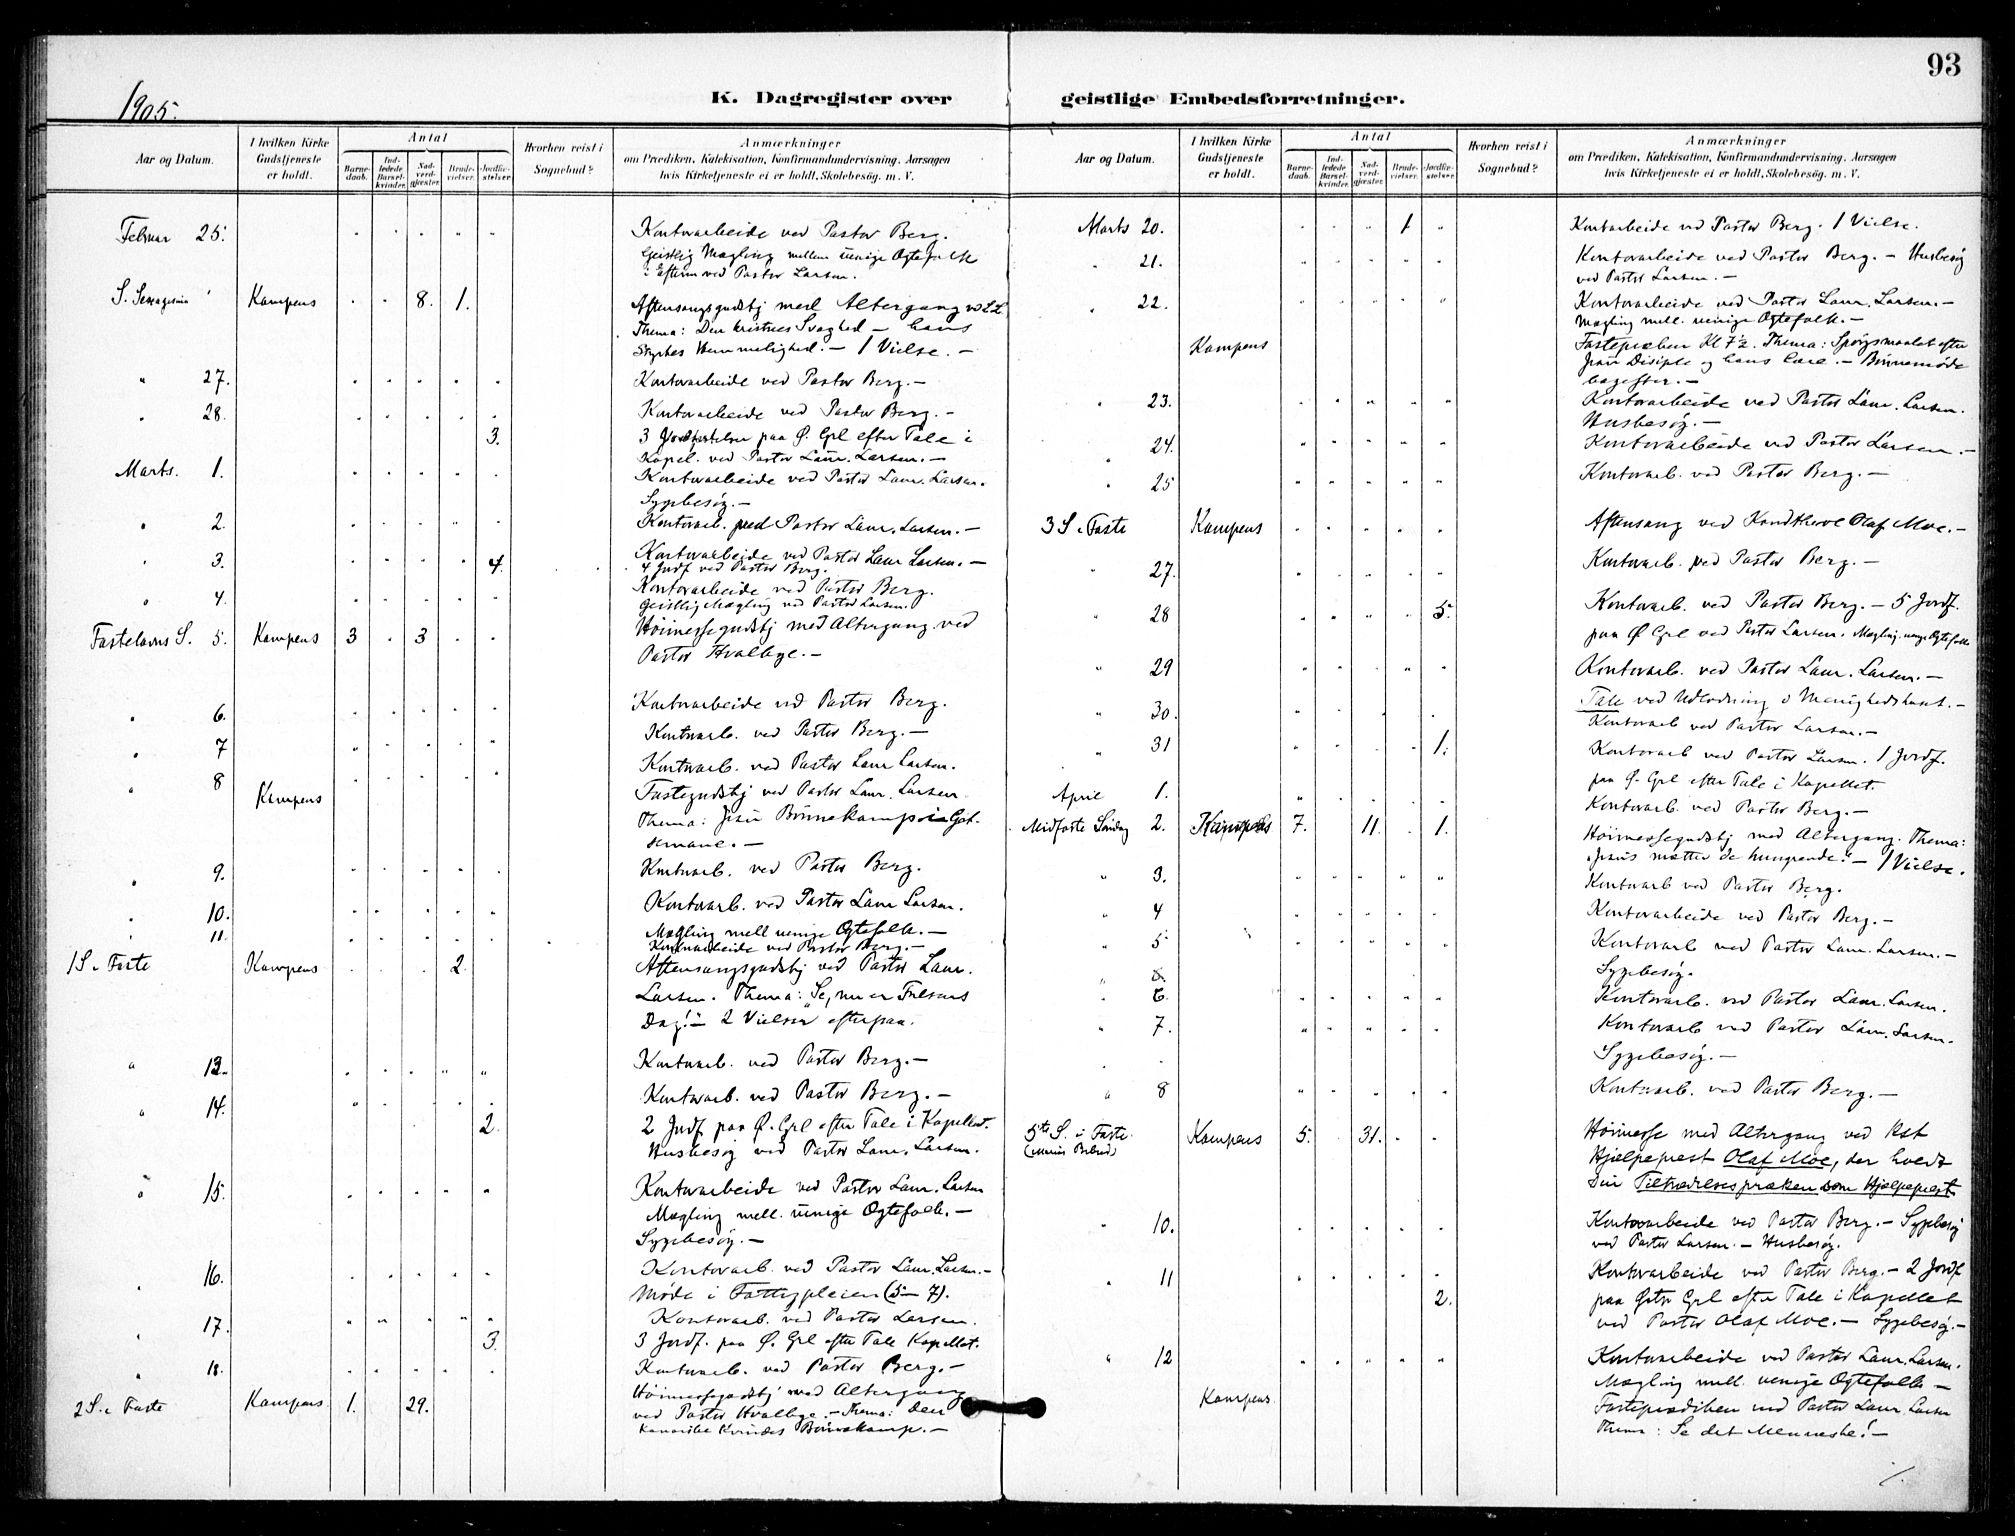 93
1905.
K. Dagregister over geistlige Embedsforretninger.
Aar og Datum.
I hvilken Kirke Gudstjeneste er holdt.
Antal
Barnedaab.
Indledede Barselkvinder.
Nadverdgjester.
Brudevielser.
Jordfæstelser.
Hvorhen reist i Sognebud?
Anmærkninger
om Prædiken, Katekisation, Konfirmandundervisning. Aarsagen
hvis Kirketjeneste ei er holdt, Skolebesøg. m. V.
Februar 25. Kontorarbeide ved Pastor Berg.
Geistlig Mægling mellem uenige Ogtefolk
i Efterm ved Pastor Larsen.
S. Sexagesima Kampens 8. 1. Aftensangsgudstj med Altergang v L.L.
Thema: Den kristnes Svaghed – hans
Styrkes Hemmelighed. – 1 Vielse. –
" 27. Kontorarbeide ved Pastor Berg. –
" 28. Kontorarbeide ved Pastor Berg. –
3. 3 Jordfæstelser paa Ø. Grl efter Tale i
Kapel. ved Pastor Laur. Larsen. –
Marts. 1. Kontorarbeide ved Pastor Laur. Larsen.
Sygebesøg. –
" 2. Kontorarb. ved Pastor Laur. Larsen. –
" 3. Kontorarbeide ved Pastor Laur Larsen. –
4. 4 Jordf ved Pastor Berg.
" 4. Kontorarbeide ved Pastor Berg.
Geistlig Mægling ved Pastor Larsen.
Fastelavns S. 5. Kampens 3 3 Høimessegudstj med Altergang ved
Pastor Hvalbye. –
" 6. Kontorarbeide ved Pastor Berg.
" 7 Kontorarb. ved Pastor Berg. –
" 8 Kontorarb. ved Pastor Laur Larsen.
Kampens Fastegudstj ved Pastor Laur. Larsen.
Thema: Jesu Bønnekamp i Getsemane. –
" 9. Kontorarb. ved Pastor Berg.
" 10. Kontorarb. ved Pastor Laur Larsen.
Mægling mell uenige Ogtefolk. –
" 11. Kontorarbeide ved Pastor Berg. –
1 S. i Faste Kampens 2. Aftensangsgudstj ved Pastor Laur.
Larsen. Thema: "Se, nu er Frelsens
Dag!" 2 Vielser efterpaa.
" 13. Kontorarb. ved Pastor Berg. –
" 14. Kontorarb. ved Pastor Berg. –
2. 2 Jordf paa Ø. Grl efter Tale i Kapellet.
Husbesøg ved Pastor Laur. Larsen.
" 15. Kontorarbeide ved Pastor Laur. Larsen
Mægling mell. uenige Ogtefolk. –
Sygebesøg. –
" 16. Kontorarb. ved Pastor Laur. Larsen. –
Møde i Fattigpleien (5–7).
" 17. Kontorarb. ved Pastor Larsen.
3. 3 Jordf. paa Ø. Grl efter Tale Kapellet.
" 18. Kontorarb. ved Pastor Berg. –
2 S. i Faste Kampens 1. 29. Høimessegudstj med Altergang
ved Pastor Hvalbye. – Thema: Den
kananitiske Kvindes Bønnekamp. –
Aar og Datum.
I hvilken Kirke Gudstjeneste er holdt.
Antal
Barnedaab.
Indledede Barselkvinder.
Nadverdgjester.
Brudevielser.
Jordfæstelser.
Hvorhen reist i Sognebud?
Anmærkninger
om Prædiken, Katekisation, Konfirmandundervisning. Aarsagen
hvis Kirketjeneste ei er holdt, Skolebesøg. m. V.
Marts 20. 1 Kontorarbeide ved Pastor Berg. 1 Vielse.
" 21. Kontorarbeide ved Pastor Berg. – Husbesøg
ved Pastor Larsen. –
" 22. Kontorarbeide ved Pastor Laur. Larsen. –
Mægling mell. uenige Ogtefolk. –
Kampens Fastepræken Kl 7½. Thema: Spørgsmaalet efter
Jesu Disiple og hans Lære. – Bønnemøde
bagefter. –
" 23. Kontorarbeide ved Pastor Laur. Larsen.
Husbesøg. –
" 24. Kontorarbeide ved Pastor Larsen. –
" 25 Kontorarb. ved Pastor Berg. –
3 S. i Faste Kampens Aftensang ved Kand theol Olaf Moe. –
" 27. Kontorarb. ved Pastor Berg. –
" 28 5. Kontorarb. ved Pastor Berg. – 5 Jordf.
paa Ø Grl ved Pastor Larsen. Mægling uenige Ogtefolk
" 29 Kontorarb. ved Pastor Laur. Larsen. –
Tale ved Utlodning i Menighedshuset. –
" 30. Kontorarb ved Pastor Larsen. –
" 31 1. Kontorarb ved Pastor Larsen. 1 Jordf.
paa Ø. Grl efter Tale i Kapellet.
April 1. Kontorarb. ved Pastor Berg. –
Midfaste Søndag 2. Kampens 7. 11. 1. Høimessegudstj med Altergang. Thema:
"Jesus mætter de hungrende." – 1 Vielse.
" 3. Kontorarb ved Pastor Berg.
" 4 Kontorarbeide ved Pastor Berg. –
" 5 Kontorarb ved Pastor Laur. Larsen. –
Sygebesøg.
" 6. Kontorarb. ved Pastor Laur. Larsen.
" 7. Kontorarb ved Pastor Laur. Larsen.
Sygebesøg. –
" 8 Kontorarb. ved Pastor Berg. –
5te S. i Faste Kampens 5. 31. Høimesse med Altergang ved Kst
(Mariæ Bebud) Hjælpeprest Olaf Moe, der holdt
Sin Tiltrædelsespræken som Hjælpeprest.
" 10. Kontorarbeide ved Pastor Berg. – Sygebesøg
ved Pastor Larsen. – Husbesøg.
" 11 Kontorarbeide ved Pastor Berg. – 2 Jordf
2. paa Østr Grl efter Tale i Kapellet
ved Pastor Olaf Moe. – Sygebesøg. –
" 12 Kontorarbeide ved Pastor Laur. Larsen.
Mægling mell. uenige Ogtefolk –
Kampens. Fasteprædiken ved Pastor Laur. Larsen
Thema: Se det Menneske! –